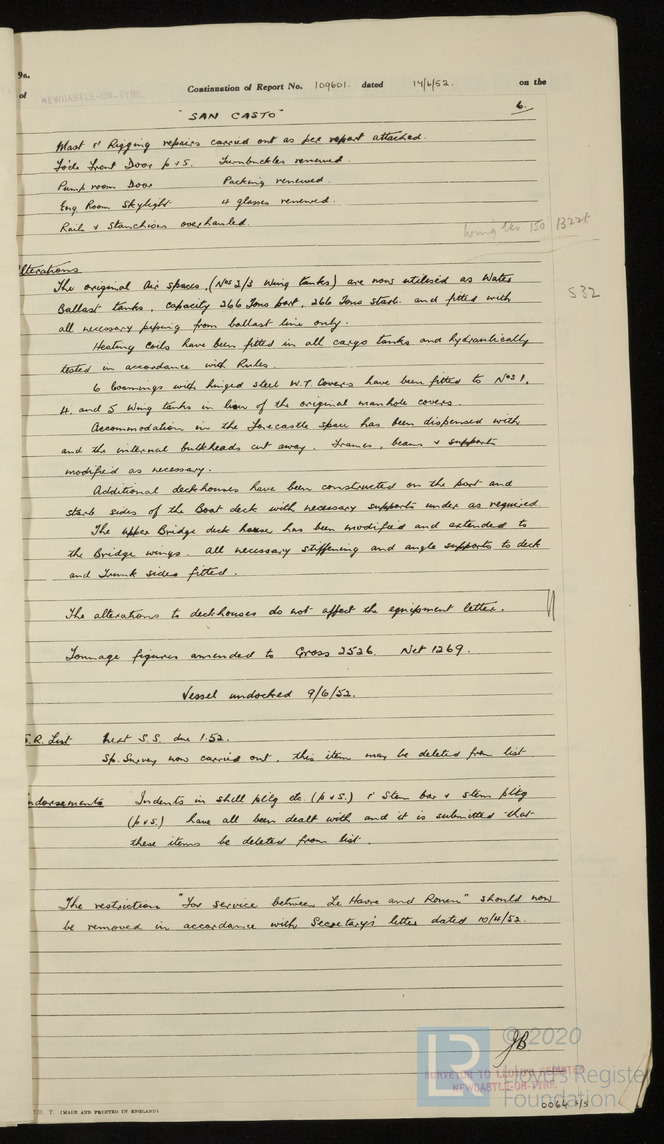 9a.
of
NEWCASTLE-ON-TYNE.
Continuation of Report No. 109601. dated 14/6/52. on the
"SAN CASTO"
6.
Mast & Rigging repairs carried out as per report attached.
Fo'cle Front Door p & s. Turnbuckles renewed.
Pump room Door Packing renewed.
Eng Room Skylight 4 glasses renewed.
Rails & Stanchions overhauled.
wing tks 150 1322t
Alterations
The original Air spaces, (Nos 2/3 Wing tanks) are now utilised as Water
Ballast tanks, capacity 266 Tons port, 266 Tons starb. and fitted with
532
all necessary piping from ballast line only.
Heating coils have been fitted in all cargo tanks and hydraulically
tested in accordance with Rules.
6 Coamings with hinged steel W.T. Covers have been fitted to Nos 1,
4, and 5 Wing tanks in lieu of the original manhole covers.
Accommodation in the Forecastle space has been dispensed with
and the internal bulkheads cut away. Frames, beams & supports
modified as necessary.
Additional deckhouses have been constructed on the port and
starb sides of the Boat deck with necessary supports under as required.
The upper Bridge deck house has been modified and extended to
the Bridge wings. All necessary stiffening and angle supports to deck
and Trunk sides fitted.
The alterations to deckhouses do not affect the equipment letter.
Tonnage figures amended to Gross 2526. Net 1269.
Vessel undocked 9/6/52.
S.R. List Next S.S. due 1.52.
Sp. Survey now carried out, this item may be deleted from list
Endorsements Indents in shell pltg etc. (p & s.) & Stem bar & stem pltg
(p & s.) have all been dealt with and it is submitted that
these items be deleted from list.
The restriction "For service between Le Havre and Rouen" should now
be removed in accordance with Secretary's letter dated 10/4/52.
JB
SURVEYOR TO LLOYD'S REGISTER
NEWCASTLE-ON-TYNE.
LR
© 2020
Lloyd's Register
Foundation
T. (MADE AND PRINTED IN ENGLAND)